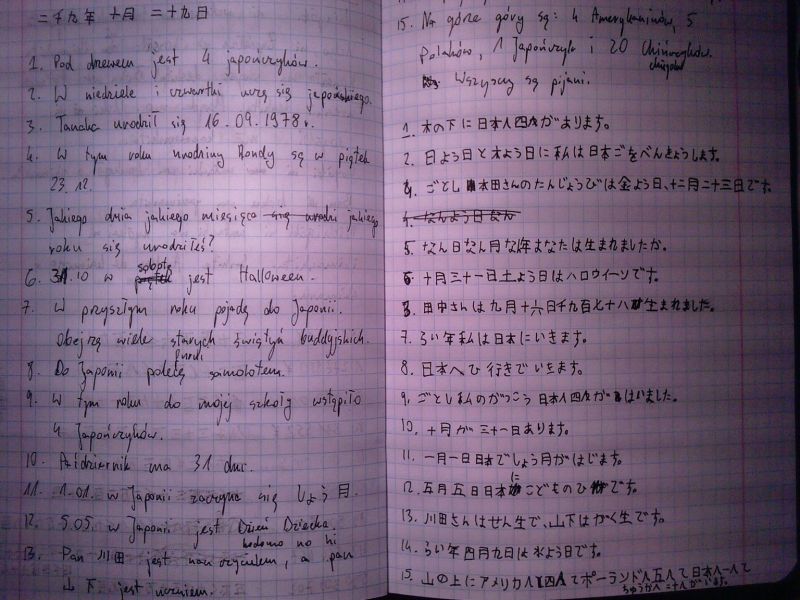 二千九年 十月 二十九日
1. Pod drzewem jest 4 japończyków.
2. W niedziele i czwartki uczę się japońskiego.
3. Tanaka urodził się 16.09.1978 r.
4. W tym roku urodziny Hondy są w piątek
23.12.
5. Jakiego dnia jakiego miesiąca jakiego
roku się urodziłeś?
6. 31.10 w sobotę jest Halloween.
7. W przyszłym roku pojadę do Japonii.
Obejrzę wiele starych świątyń buddyjskich.
8. Do Japonii polecę samolotem.
9. W tym roku do mojej szkoły wstąpiło
4 Japończyków.
10. Październik ma 31 dni.
11. 1.01. w Japonii zaczyna się しょう月.
12. 5.05 w Japonii jest Dzień Dziecka.
13. Pan 川田 jest nauczycielem, a pan
山下 jest uczniem.
15. Na górze góry są: 4 Amerykaninów, 5
Polaków, 1 Japończyk i 20 Chińczyków.
Wszyscy są pijani.
1. 木の下に日本人四人があります。
2. 日よう日と木よう日に私は日本ごをべんきょうします。
4. ことし本田さんのたんじょうびは金よう日、十二月二十三日です。
4. なんよう日なん
5. なん日なん月なん年あなたは生まれましたか。
6. 十月三十一日土よう日はハロウィーンです。
3. 田中さんは九月十六日千九百七十八年生まれました。
7. らい年私は日本にいきます。
8. 日本へひ行きでいきます。
9. ことし私のがっこう日本人四人がはいました。
10. 十月が三十一日あります。
11. 一月一日日本でしょう月がはじます。
12. 五月五日日本にこどものひです。
13. 川田さんはせん生で、山下はがく生です。
14. らい年四月九日は水よう日です。
15. 山の上にアメリカ人四人てポーランド人五人て日本人一人て
ちゅうか人二十人がいます。